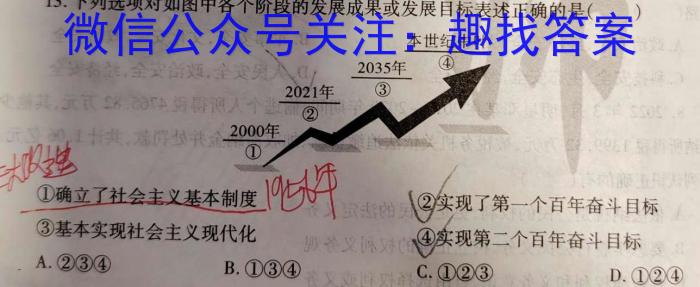 13. 下列选项对如图中各个阶段的发展成果或发展目标表述正确的是(　　)
微信公众号关注：趣找答案
本世纪中
④
2035年
③
2021年
②
2000年
①
三大改造
①确立了社会主义基本制度 1956年
②实现了第一个百年奋斗目标
③基本实现社会主义现代化
④实现第二个百年奋斗目标
A. ②③④
B. ①③④
C. ①②③
D. ①②④